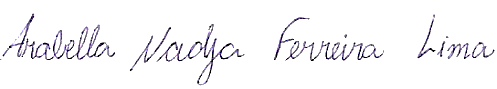 Arabella Nadja Ferreira Lima